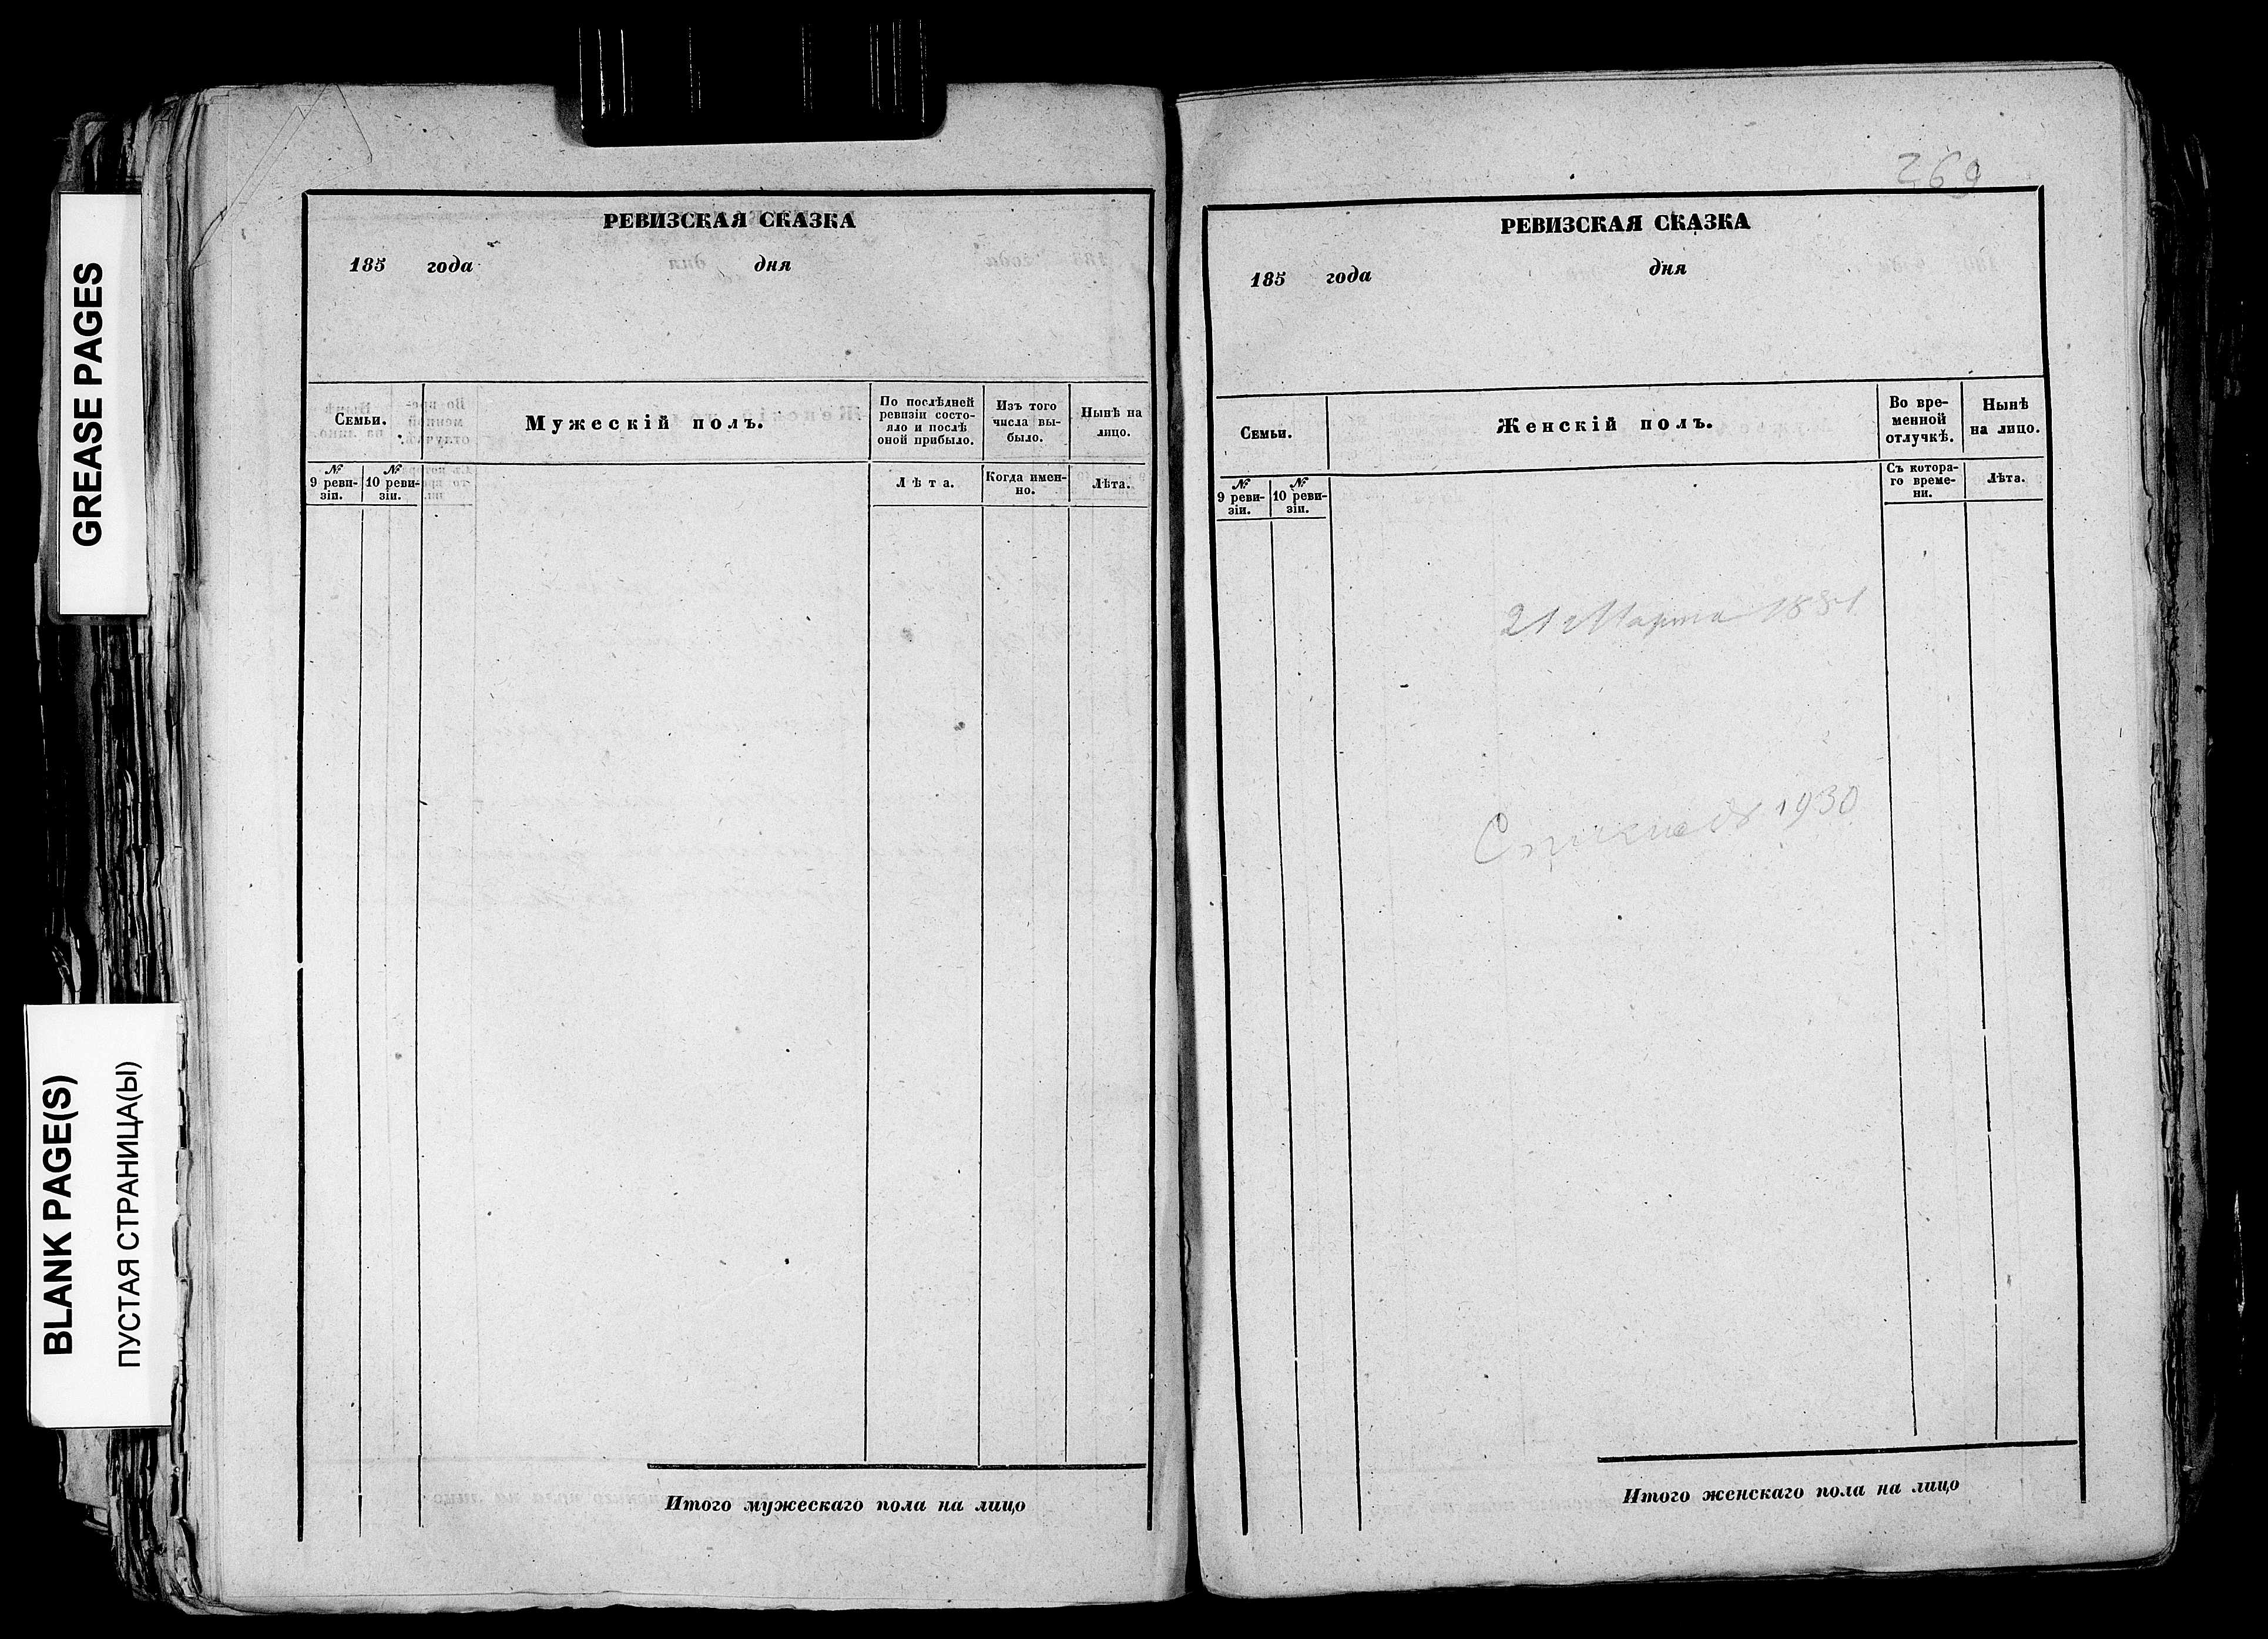 GREASE PAGES
BLANK PAGE(S)
ПУСТАЯ СТРАНИЦА(Ы)
РЕВИЗСКАЯ СКАЗКА
185 года дня
Семьи.
Мужескій полъ.
По послѣдней
ревизіи состо-
яло и послѣ
оной прибыло.
Изъ того
числа вы-
было.
Нынѣ на
лицо.
№
9 реви-
зіи.
№
10 реви-
зіи.
Лѣта.
Когда имен-
но.
Лѣта.
Итого мужескаго пола на лицо
269
РЕВИЗСКАЯ СКАЗКА
185 года дня
Семьи.
Женскій полъ.
Во вре-
менной
отлучкѣ.
Нынѣ
на лицо.
№
9 реви-
зіи.
№
10 реви-
зіи.
Съ котора-
го време-
ни.
Лѣта.
21 Марта
1930
Итого женскаго пола на лицо